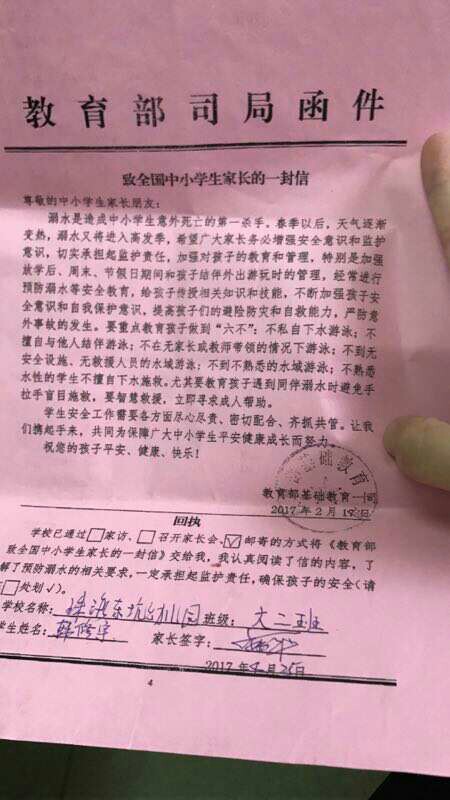 教育部司局函件
致全国中小学生家长的一封信
尊敬的中小学生家长朋友：
溺水是造成中小学生意外死亡的第一杀手。春季以后，天气逐渐
变热，溺水又将进入高发季，希望广大家长务必增强安全意识和监护
意识，切实承担起监护责任，加强对孩子的教育和管理，特别是加强
放学后、周末、节假日期间和孩子结伴外出游玩时的管理，经常进行
预防溺水等安全教育，给孩子传授相关知识和技能，不断加强孩子安
全意识和自我保护意识，提高孩子们的避险防灾和自救能力，严防意
外事故的发生。要重点教育孩子做到“六不”：不私自下水游泳；不
擅自与他人结伴游泳；不在无家长或教师带领的情况下游泳；不到无
安全设施、无救援人员的水域游泳；不到不熟悉的水域游泳；不熟悉
水性的学生不擅自下水施救。尤其要教育孩子遇到同伴溺水时避免手
拉手盲目施救，要智慧救援，立即寻求成人帮助。
学生安全工作需要各方面尽心尽责、密切配合、齐抓共管。让我
们携起手来，共同为保障广大中小学生平安健康成长而努力。
祝您的孩子平安、健康、快乐！
基础教育
教育部基础教育一司
2017年2月17日
回执
学校已通过□家访、□召开家长会、☑邮寄的方式将《教育部
致全国中小学生家长的一封信》交给我，我认真阅读了信的内容，了
解了预防溺水的相关要求，一定承担起监护责任，确保孩子的安全（请
□处划√）。
学校名称：东坑幼儿园 班级：大二班
学生姓名： 家长签字：
2017年4月25日
4